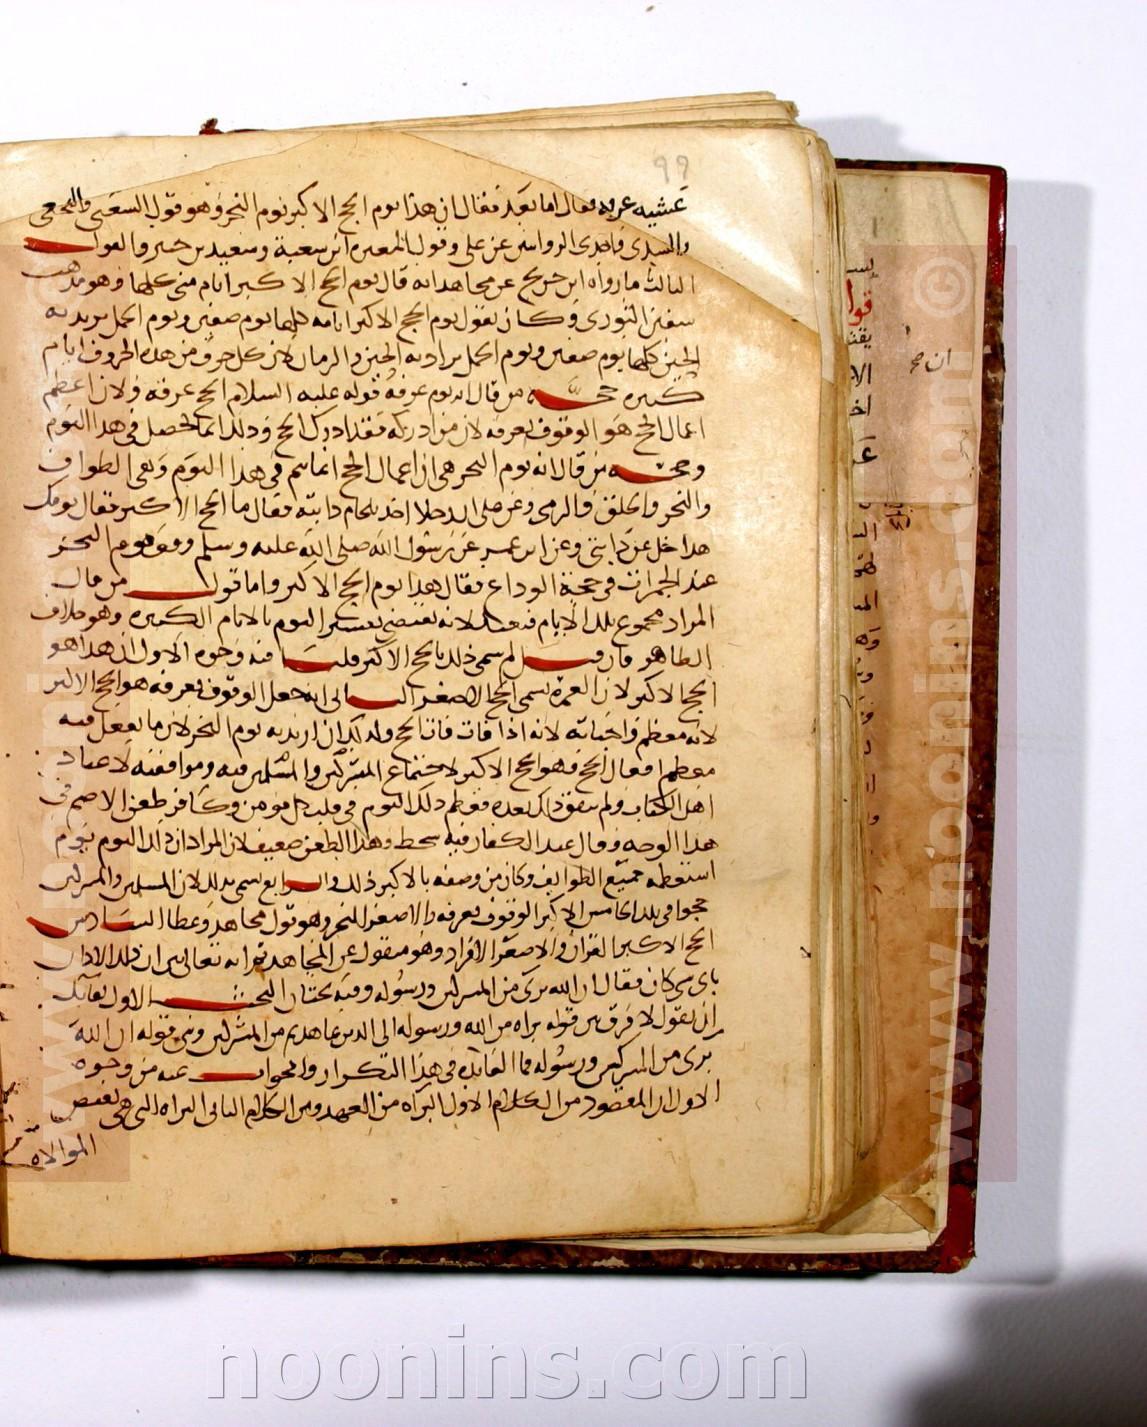 99
عشية عرفة فقال اما بعد فقال ان هذا يوم الحج الاكبر يوم النحر وهو قول الشعبي والنخعي
والسدي واحدى الروايتين عن علي وقول المغيرة ابن شعبة وسعيد بن جبير والقول
الثالث ما رواه ابن جريج عن مجاهد انه قال يوم الحج الاكبر ايام منى كلها وهو مذهب
سفين الثوري وكان يقول يوم الحج الاكبر ايامه كلها يوم صفين ويوم الجمل يريد به
الحين كلها يوم صفين ويوم الجمل يراد به الحين والزمان لان كل حرب من هذه الحروب ايام
كثيره حجة من قال انه يوم عرفة قوله عليه السلام الحج عرفه ولان اعظم
اعمال الحج هو الوقوف بعرفه لان من ادركه فقد ادرك الحج وذلك انما يحصل في هذا اليوم
وحجة من قال انه يوم النحر هي ان اعمال الحج انما تتم في هذا اليوم وهي الطواف
والنحر والحلق والرمي وعن علي ان رجلا اخذ بلجام دابته فقال ما الحج الاكبر فقال يومك
هذا خل عن دابتي وعن ابن عمر عن رسول الله صلى الله عليه وسلم وقف يوم النحر
عند الجمرات في حجة الوداع فقال هذا يوم الحج الاكبر واما قول من قال
المراد مجموع تلك الايام فبعيد لانه يقتضي تفسير اليوم بالايام الكثيره وهو خلاف
الظاهر فان قيل لم سمى ذلك بالحج الاكبر قلنا فيه وجوه الاول ان هذا هو
الحج الاكبر لان العمرة تسمى الحج الاصغر الثاني انه جعل الوقوف بعرفه هو الحج الاكبر
لانه معظم واجباته لانه اذا فات فات الحج وكذلك ان اريد به يوم النحر لان ما يفعل فيه
معظم افعال الحج فهو الحج الاكبر لاجتماع المشركين والمسلمين فيه وموافقته لاعياد
اهل الكتاب ولم يتفق ذلك بعده فعظم ذلك اليوم في قلب كل مؤمن وكافر طعن الاصم في
هذا الوجه وقال عيد الكفار فيه سخط وهذا الطعن ضعيف لان المراد ان ذلك اليوم يوم
استعظمه جميع الطوايف وكان من وصفه بالاكبر ذلك والرابع سمى بذلك لان المسلمين والمشركين
حجوا في تلك الخامس الاكبر الوقوف بعرفه والاصغر النحر وهو قول مجاهد وعطا السادس
الحج الاكبر القران والاصغر الافراد وهو منقول عن المجاهد ثم انه تعالى بين ان ذلك الاذان
باي شي كان فقال ان الله بري من المشركين ورسوله وفيه بحثان البحث الاول لقايل
ان يقول لا فرق بين قوله براة من الله ورسوله الى الذين عاهدتم من المشركين وبين قوله ان الله
بري من المشركين ورسوله فما الفايدة في هذا التكرار والجواب عنه من وجوه
الاول ان المقصود من الكلام الاول البراة من العهد ومن الكلام الثاني البراة التي هي نقيض
الموالاة
ان صح
noonins.com